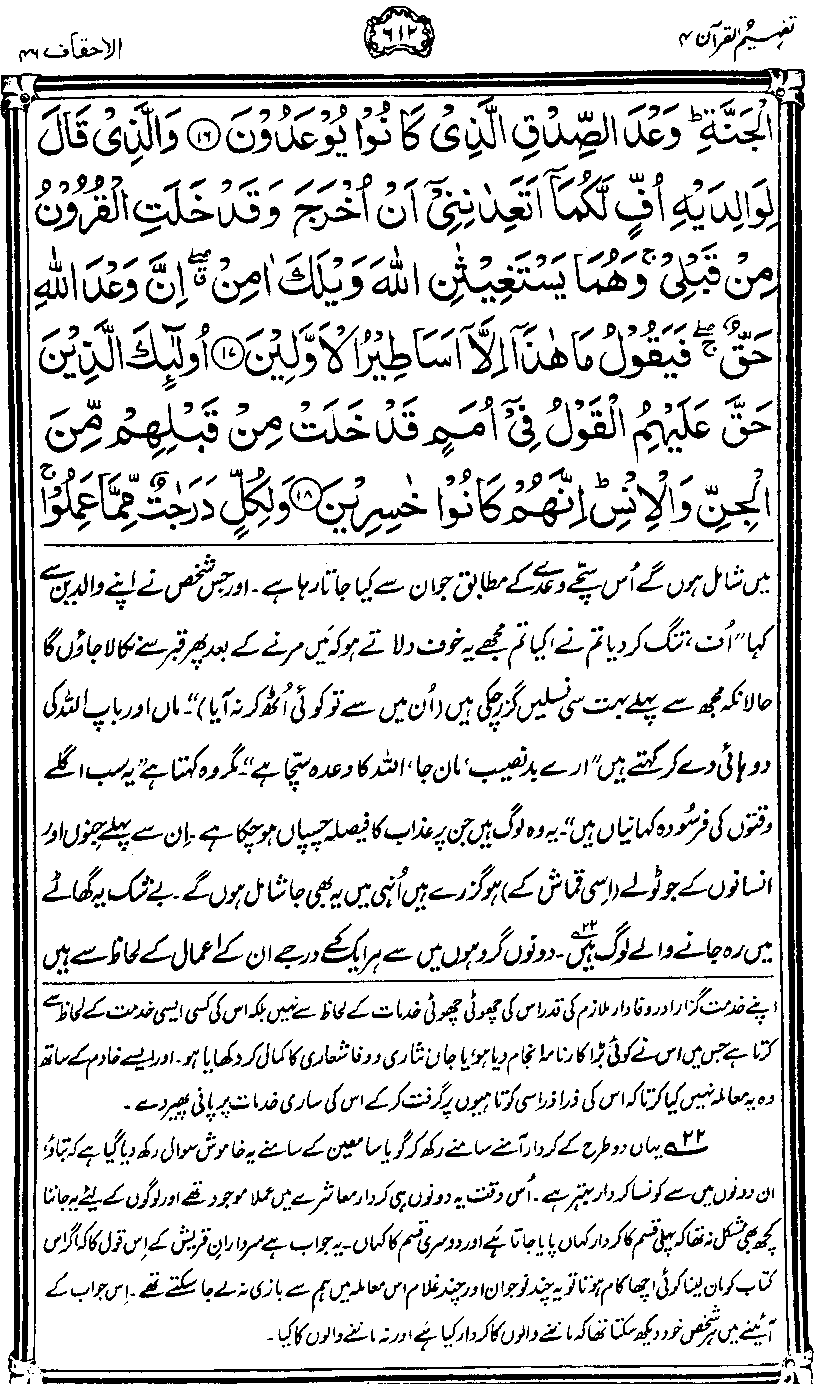 تفہیم القرآن ۴
۶۱۲
الاحقاف ۴۶
الْجَنَّةِ ؕ وَعْدَ الصِّدْقِ الَّذِیْ كَانُوْا یُوْعَدُوْنَ ۝۱۶ وَالَّذِیْ قَالَ
لِوَالِدَیْهِ اُفٍّ لَّكُمَاۤ اَتَعِدٰنِنِیْۤ اَنْ اُخْرَجَ وَقَدْ خَلَتِ الْقُرُوْنُ
مِنْ قَبْلِیْ ۚ وَهُمَا یَسْتَغِیْثٰنِ اللّٰهَ وَیْلَكَ اٰمِنْ ۖۗ اِنَّ وَعْدَ اللّٰهِ
حَقٌّ ۖۚ فَیَقُوْلُ مَا هٰذَاۤ اِلَّاۤ اَسَاطِیْرُ الْاَوَّلِیْنَ ۝۱۷ اُولٰٓئِكَ الَّذِیْنَ
حَقَّ عَلَیْهِمُ الْقَوْلُ فِیْۤ اُمَمٍ قَدْ خَلَتْ مِنْ قَبْلِهِمْ مِّنَ
الْجِنِّ وَالْاِنْسِ ؕ اِنَّهُمْ كَانُوْا خٰسِرِیْنَ ۝۱۸ وَلِكُلٍّ دَرَجٰتٌ مِّمَّا عَمِلُوْا ۚ
میں شامل ہوں گے اُس سچے وعدے کے مطابق جو ان سے کیا جاتا رہا ہے۔ اور جس شخص نے اپنے والدین سے
کہا ”اُف، تنگ کر دیا تم نے، کیا تم مجھے یہ خوف دلاتے ہو کہ میں مرنے کے بعد پھر قبر سے نکالا جاؤں گا
حالانکہ مجھ سے پہلے بہت سی نسلیں گزر چکی ہیں (اُن میں سے تو کوئی اُٹھ کر نہ آیا)“۔ ماں اور باپ اللہ کی
دوہائی دے کر کہتے ہیں ”ارے بدنصیب، مان جا، اللہ کا وعدہ سچا ہے“۔ مگر وہ کہتا ہے ”یہ سب اگلے
وقتوں کی فرسودہ کہانیاں ہیں“۔ یہ وہ لوگ ہیں جن پر عذاب کا فیصلہ چسپاں ہو چکا ہے۔ اِن سے پہلے جنوں اور
انسانوں کے جو ٹولے (اِسی قماش کے) ہو گزرے ہیں اُنہی میں یہ بھی جا شامل ہوں گے۔ بے شک یہ گھاٹے
میں رہ جانے والے لوگ ہیں۲۲۔ دونوں گروہوں میں سے ہر ایک کے درجے ان کے اعمال کے لحاظ سے ہیں
اپنے خدمت گزار اور وفادار ملازم کی قدر اس کی چھوٹی چھوٹی خدمات کے لحاظ سے نہیں بلکہ اس کی کسی ایسی خدمت کے لحاظ سے
کرتا ہے جس میں اس نے کوئی بڑا کارنامہ انجام دیا ہو، یا جاں نثاری و وفا شعاری کا کمال کر دکھایا ہو۔ اور ایسے خادم کے ساتھ
وہ یہ معاملہ نہیں کیا کرتا کہ اس کی ذرا ذرا سی کوتاہیوں پر گرفت کر کے اس کی ساری خدمات پر پانی پھیر دے۔
۲۲ یہاں دو طرح کے کردار آمنے سامنے رکھ کر گویا سامعین کے سامنے یہ خاموش سوال رکھ دیا گیا ہے کہ بتاؤ،
ان دونوں میں سے کونسا کردار بہتر ہے۔ اُس وقت یہ دونوں ہی کردار معاشرے میں عملاً موجود تھے اور لوگوں کے لیے یہ جاننا
کچھ بھی مشکل نہ تھا کہ پہلی قسم کا کردار کہاں پایا جاتا ہے اور دوسری قسم کا کہاں۔ یہ جواب ہے سردارانِ قریش کے اِس قول کا کہ اگر اس
کتاب کو مان لینا کوئی اچھا کام ہوتا تو یہ چند نوجوان اور چند غلام اس معاملہ میں ہم سے بازی نہ لے جا سکتے تھے۔ اِس جواب کے
آئینے میں ہر شخص خود دیکھ سکتا تھا کہ ماننے والوں کا کردار کیا ہے اور نہ ماننے والوں کا کیا۔